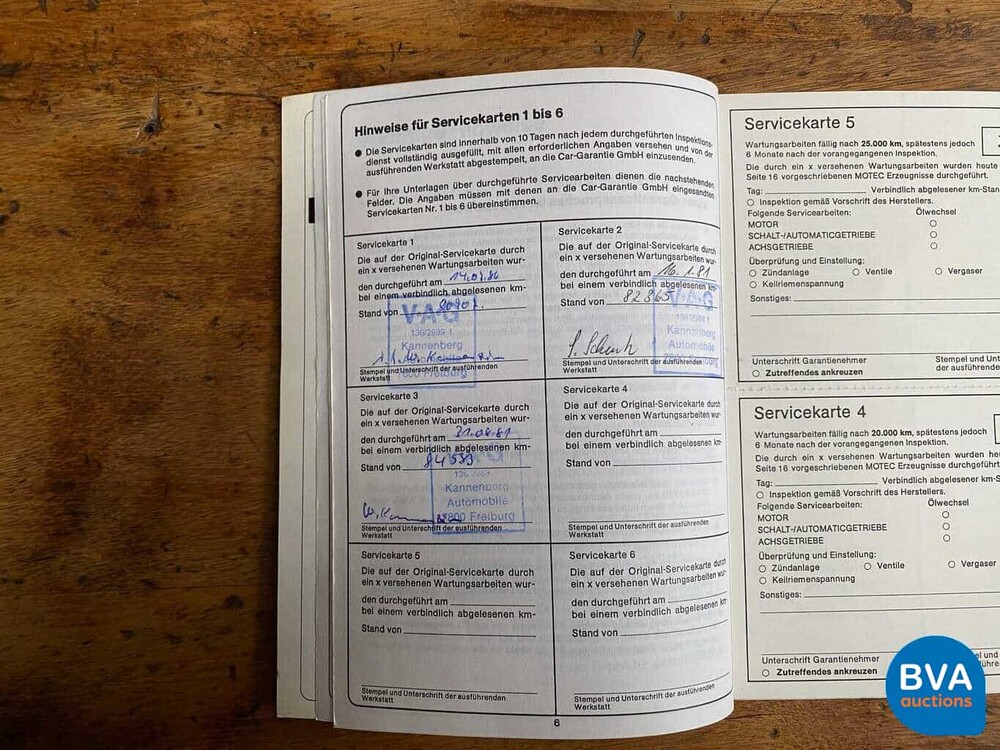 Hinweise für Servicekarten 1 bis 6
● Die Servicekarten sind innerhalb von 10 Tagen nach jedem durchgeführten Inspektions-
dienst vollständig ausgefüllt, mit allen erforderlichen Angaben versehen und von der
ausführenden Werkstatt abgestempelt, an die Car-Garantie GmbH einzusenden.
● Für Ihre Unterlagen über durchgeführte Servicearbeiten dienen die nachstehenden
Felder. Die Angaben müssen mit denen an die Car-Garantie GmbH eingesandten
Servicekarten Nr. 1 bis 6 übereinstimmen.
Servicekarte 1
Die auf der Original-Servicekarte durch
ein x versehenen Wartungsarbeiten wur-
den durchgeführt am
bei einem verbindlich abgelesenen km-
Stand von
V·A·G
Kannenberg
7800 Freiburg
Stempel und Unterschrift der ausführenden
Werkstatt
Servicekarte 2
Die auf der Original-Servicekarte durch
ein x versehenen Wartungsarbeiten wur-
den durchgeführt am 16.1.81
bei einem verbindlich abgelesenen km-
Stand von 82865
V·A·G
Kannenberg
Automobile
7800 Freiburg
Stempel und Unterschrift der ausführenden
Werkstatt
Servicekarte 3
Die auf der Original-Servicekarte durch
ein x versehenen Wartungsarbeiten wur-
den durchgeführt am 31.08.81
bei einem verbindlich abgelesenen km-
Stand von 84533
V·A·G
Kannenberg
Automobile
7800 Freiburg
Stempel und Unterschrift der ausführenden
Werkstatt
Servicekarte 4
Die auf der Original-Servicekarte durch
ein x versehenen Wartungsarbeiten wur-
den durchgeführt am
bei einem verbindlich abgelesenen km-
Stand von
Stempel und Unterschrift der ausführenden
Werkstatt
Servicekarte 5
Die auf der Original-Servicekarte durch
ein x versehenen Wartungsarbeiten wur-
den durchgeführt am
bei einem verbindlich abgelesenen km-
Stand von
Stempel und Unterschrift der ausführenden
Werkstatt
Servicekarte 6
Die auf der Original-Servicekarte durch
ein x versehenen Wartungsarbeiten wur-
den durchgeführt am
bei einem verbindlich abgelesenen km-
Stand von
Stempel und Unterschrift der ausführenden
Werkstatt
6
Servicekarte 5
Wartungsarbeiten fällig nach 25.000 km, spätestens jedoch
6 Monate nach der vorangegangenen Inspektion.
Die durch ein x versehenen Wartungsarbeiten wurden heute
Seite 16 vorgeschriebenen MOTEC Erzeugnisse durchgeführt.
Tag: Verbindlich abgelesener km-Stan
Inspektion gemäß Vorschrift des Herstellers.
Folgende Servicearbeiten: Ölwechsel
MOTOR
SCHALT-/AUTOMATICGETRIEBE
ACHSGETRIEBE
Überprüfung und Einstellung:
Zündanlage Ventile Vergaser
Keilriemenspannung
Sonstiges:
Unterschrift Garantienehmer Stempel und Unt
Zutreffendes ankreuzen der ausführende
Servicekarte 4
Wartungsarbeiten fällig nach 20.000 km, spätestens jedoch
6 Monate nach der vorangegangenen Inspektion.
Die durch ein x versehenen Wartungsarbeiten wurden heu
Seite 16 vorgeschriebenen MOTEC Erzeugnisse durchgeführt
Tag: Verbindlich abgelesener km-S
Inspektion gemäß Vorschrift des Herstellers.
Folgende Servicearbeiten: Ölwechsel
MOTOR
SCHALT-/AUTOMATICGETRIEBE
ACHSGETRIEBE
Überprüfung und Einstellung:
Zündanlage Ventile Vergaser
Keilriemenspannung
Sonstiges:
Unterschrift Garantienehmer
Zutreffendes ankreuzen
BVA
auctions